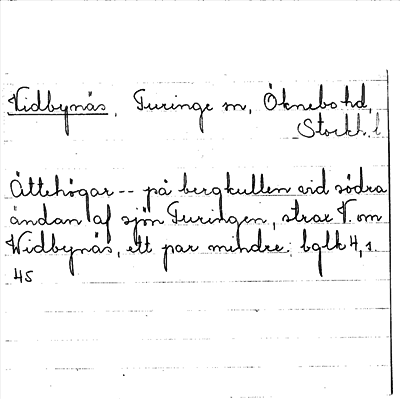 Vidbynäs, Turinge sn, Öknebo hd,
Stockh. l
Ättehögar -- på bergkullen vid södra
ändan af sjön Turingen, strax V. om
Widbynäs, ett par mindre; bglk 4, 1.
45